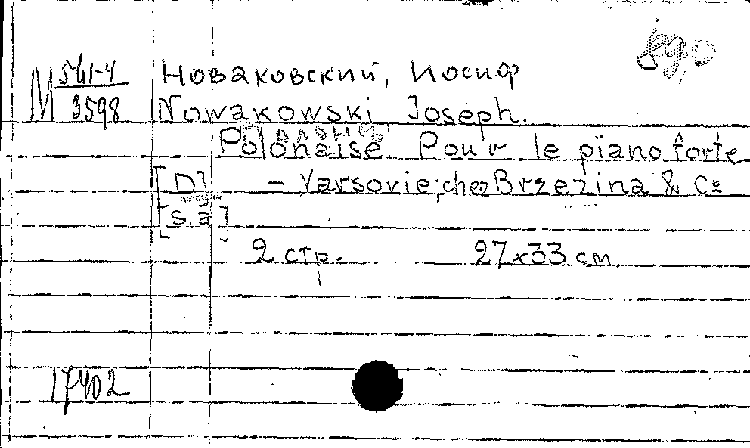 М 561-4/3598
Новаковский, Иосиф
Nowakowski Joseph.
Polonaise. Pour le piano forte
[D] — Varsovie, chez Brzezina & Co
[s.a]
2 стр. 27x33 cm.
17402